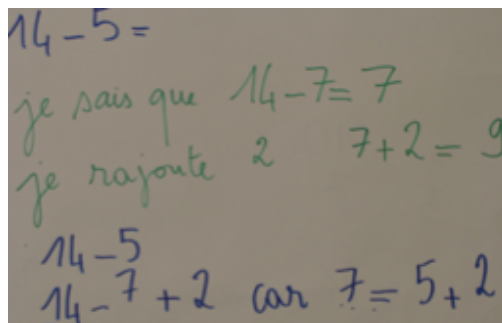 14 - 5 =
je sais que 14 - 7 = 7
je rajoute 2 7 + 2 = 9
14 - 5
14 - 7 + 2 car 7 = 5 + 2